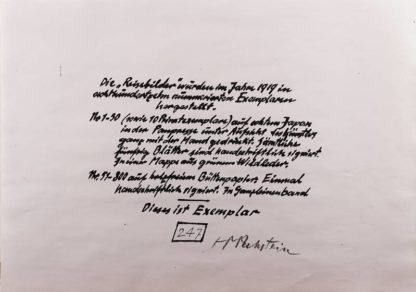 Die „Reisebilder" wurden im Jahre 1919 in
achthundertzehn nummerierten Exemplaren
hergestellt.
Nr. 1-50 (sowie 10 Privatexemplare) auf echtem Japan
in der Panpresse unter Aufsicht des Künstlers
ganz mit der Hand gedruckt. Sämtliche
fünfzig Blätter sind handschriftlich signiert.
In einer Mappe aus grünem Wildleder.
Nr. 51-800 auf holzfreiem Büttenpapier. Einmal
handschriftlich signiert. In Ganzleinenband
Dieses ist Exemplar
247
HMPechstein